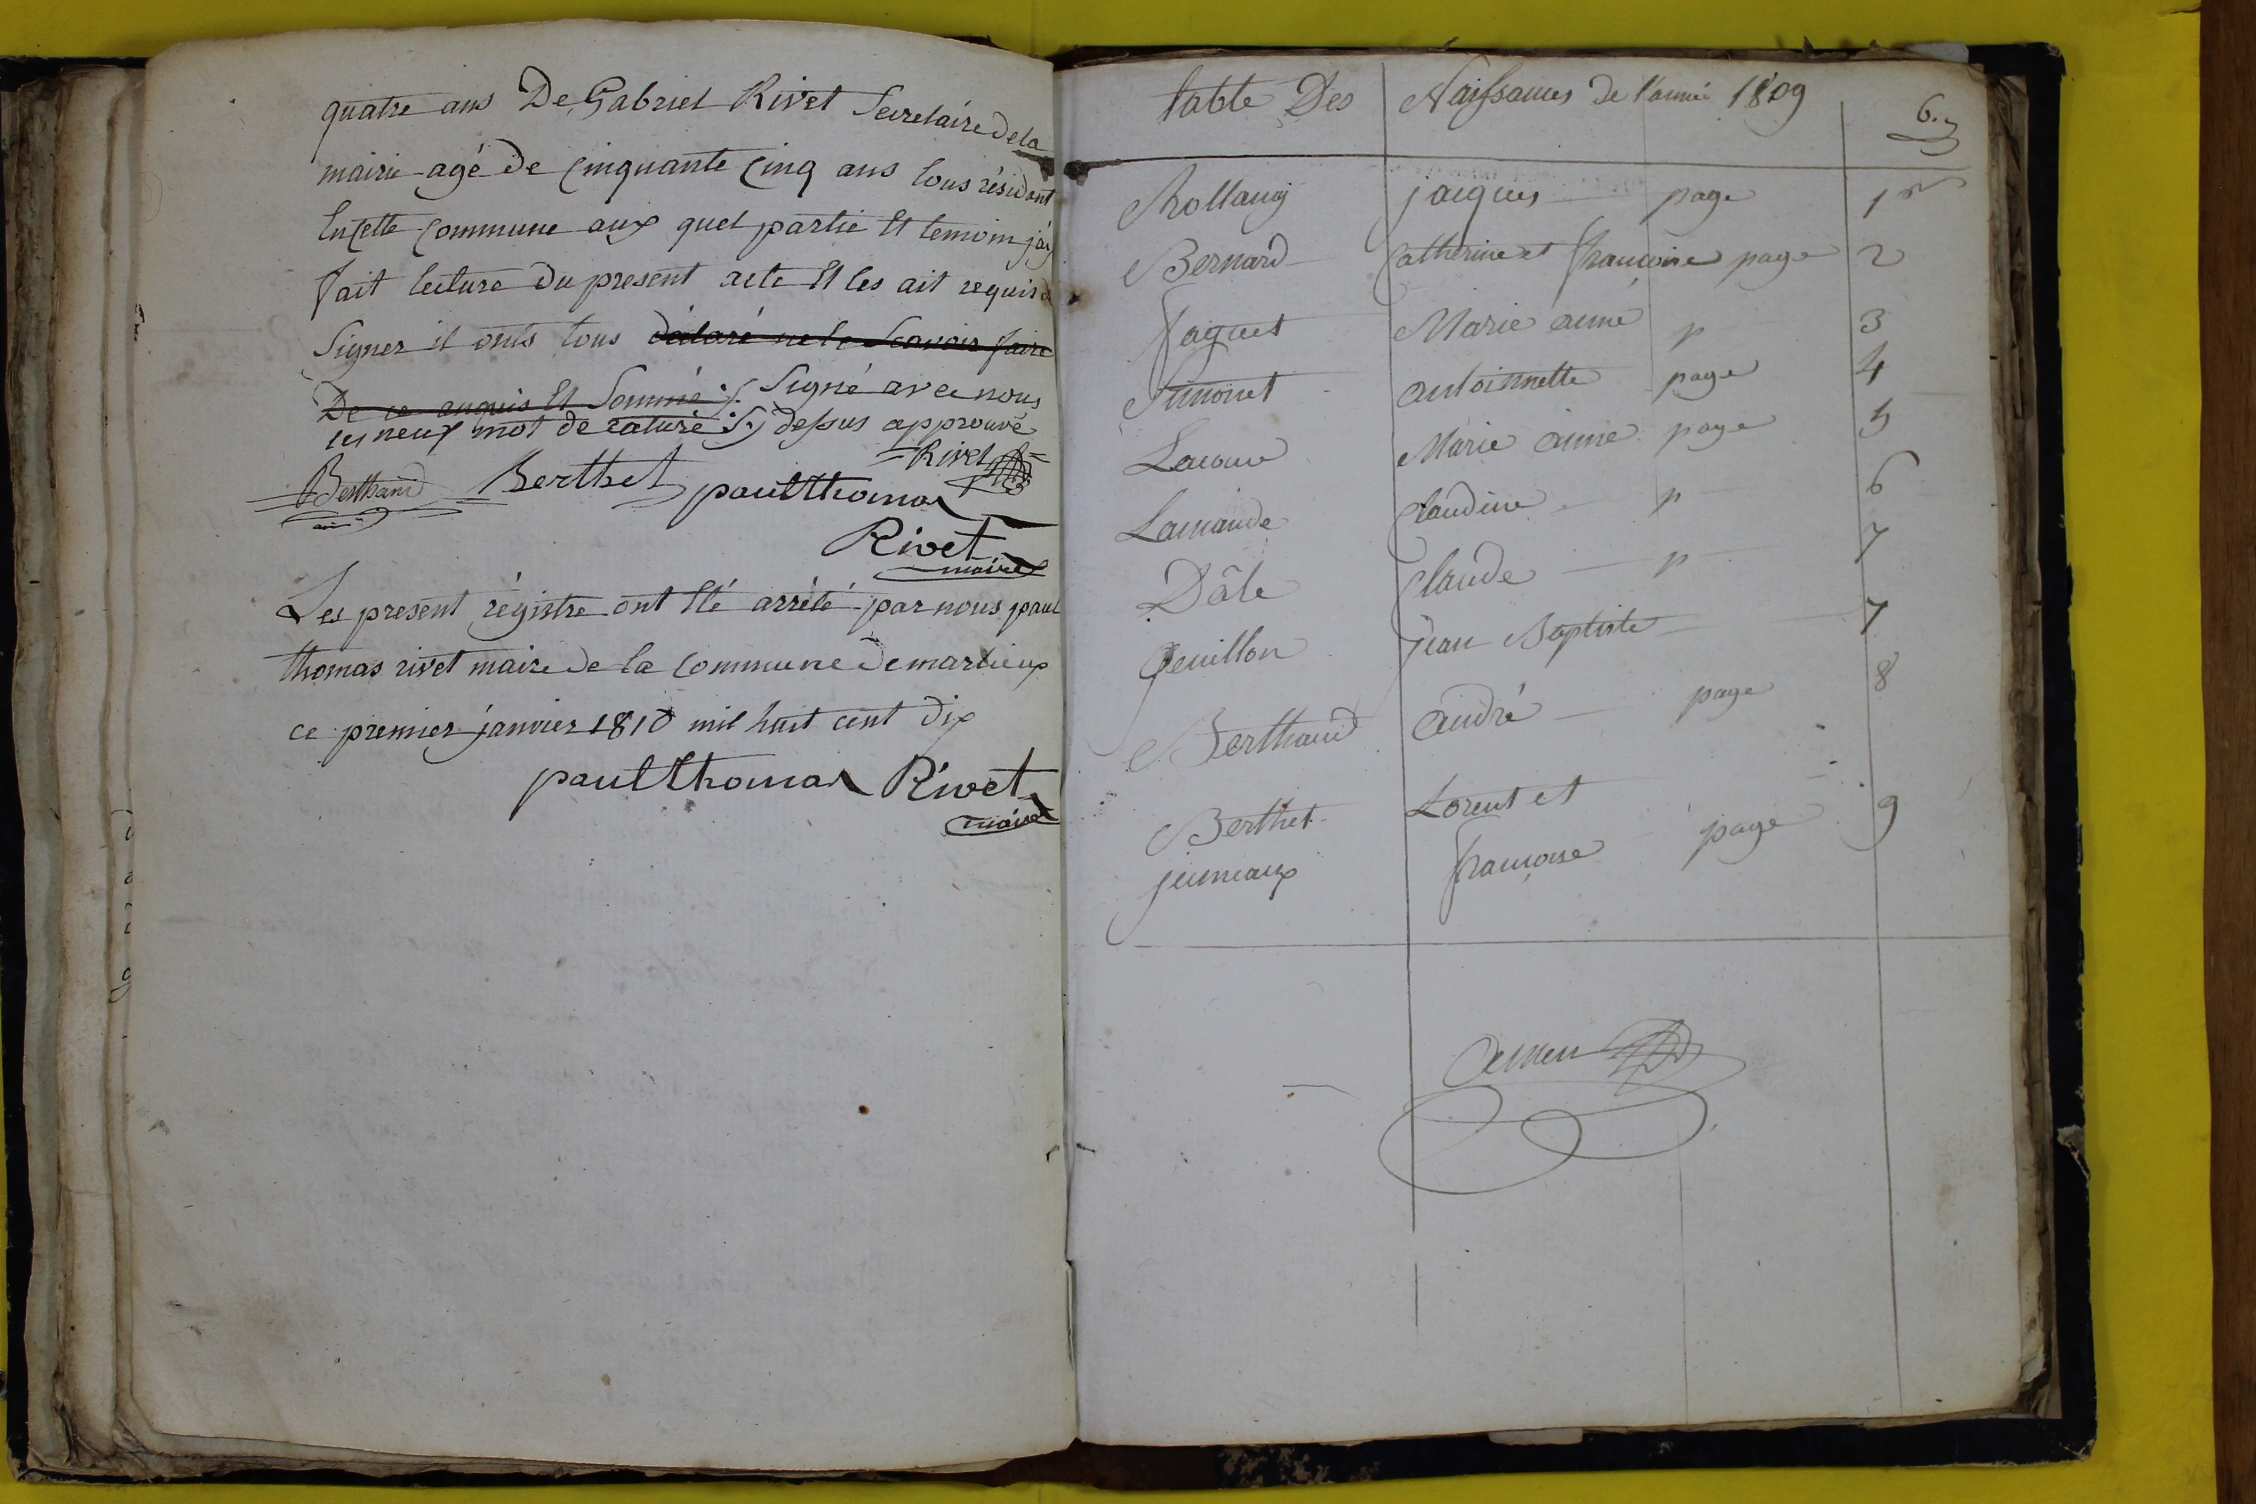 quatre ans De Gabriel Rivet Secretaire de la
mairie agé de Cinquante Cinq ans tous résidant
En Cette Commune aux quel partie Et temoin j'ay
fait lecture du present acte Et les ait requis de
Signer il onts tous déclaré ne le Scavoir faire
De ce enquis Et Sommé ·/. Signé avec nous
les neuf mot de raturé ·/. dessus approuvé
Rivet
Berthaud Berthet paul thomas
Rivet
maire
Les present régistre ont Eté arrêté par nous paul
thomas rivet maire de la Commune de marlieux
ce premier janvier 1810 mil huit cent dix
paul thomas Rivet
maire
table Des Naissances de l'année 1809
6.
jacques page 1er
Bernard Catherine et francoise page 2
faguet Marie anne p 3
Simonet antoinnette page 4
Lacour Marie anne page 5
Lamande Claudine p 6
Claude p 7
jean Baptiste 7
Berthaud andré page 8
Berthet Lorent et
jumeaux françoise page 9